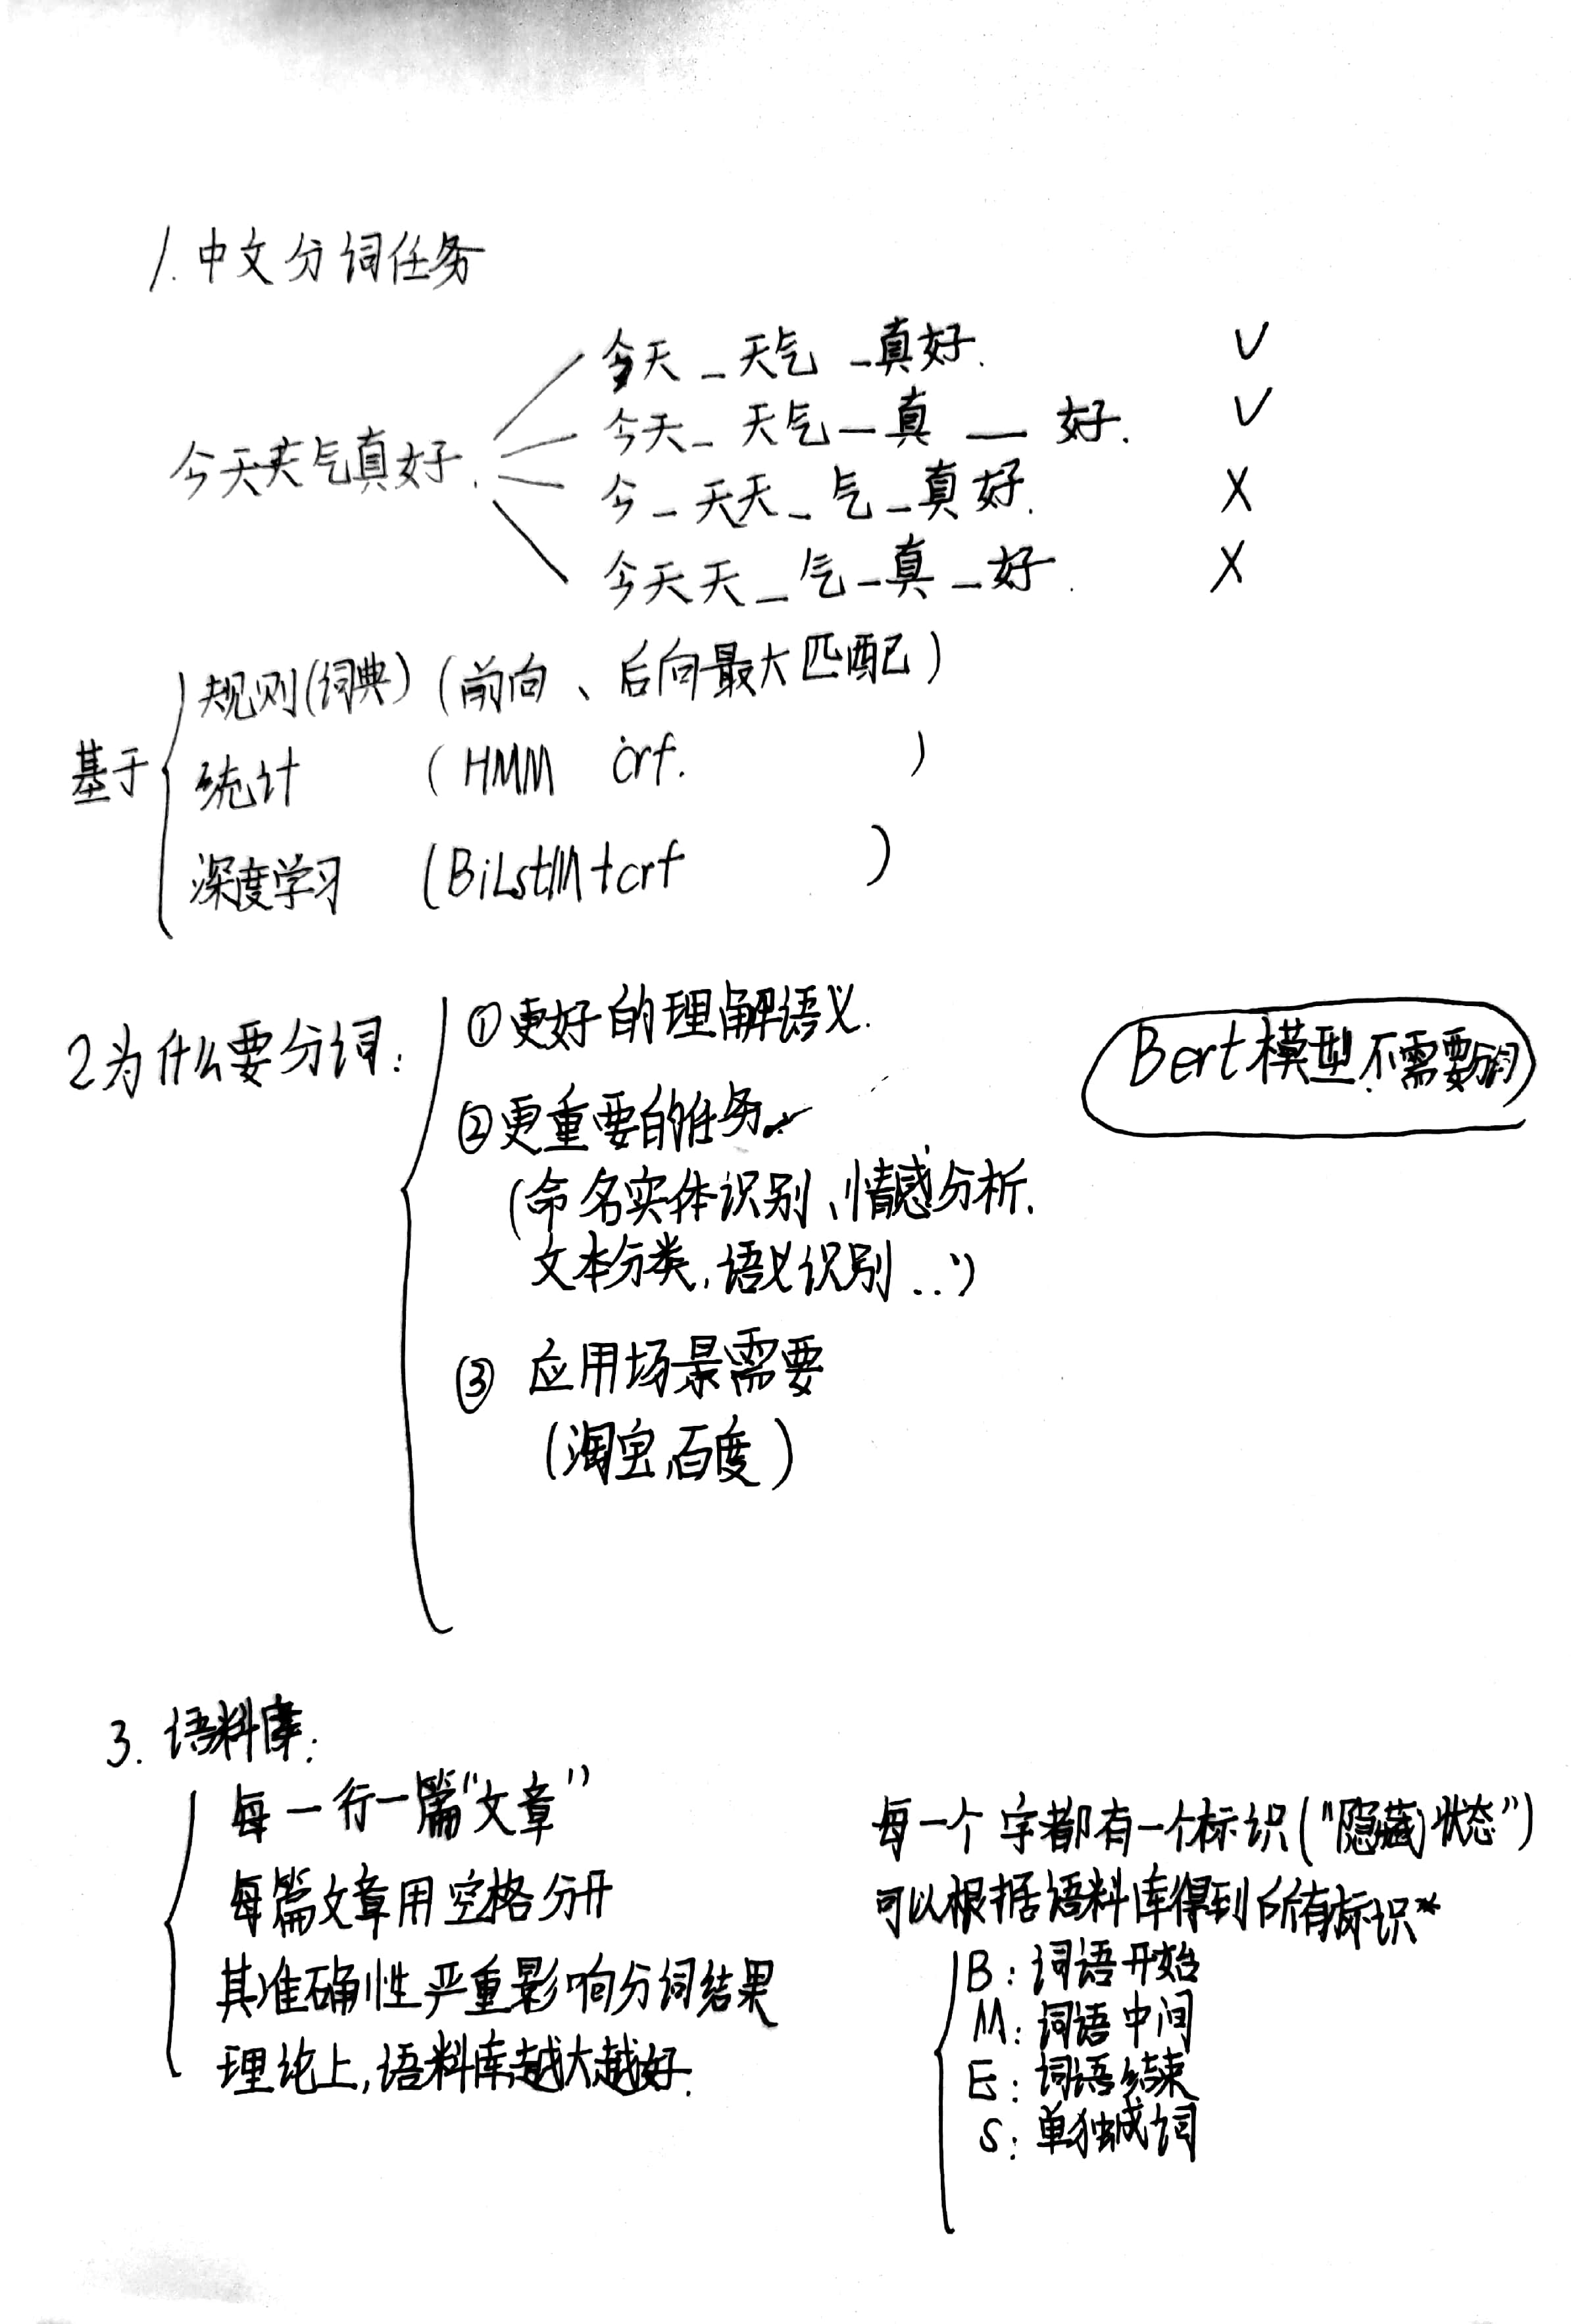 1. 中文分词任务
今天_天气_真好. √
今天_天气_真_好. √
今天天气真好.
今_天天_气_真好. X
今天天_气_真_好. X
规则(词典)(前向、后向最大匹配)
基于
统计 (HMM crf. )
深度学习 (BiLstM+crf )
2为什么要分词:
①更好的理解语义.
Bert模型不需要分词
②更重要的任务
(命名实体识别、情感分析.
文本分类,语义识别...)
③ 应用场景需要
(淘宝、百度)
3. 语料库:
每一行一篇“文章”
每篇文章用空格分开
其准确性严重影响分词结果
理论上,语料库越大越好.
每一个字都有一个标识(“隐藏状态”)
可以根据语料库得到所有标识*
B: 词语开始
M: 词语中间
E: 词语结束
S: 单独成词